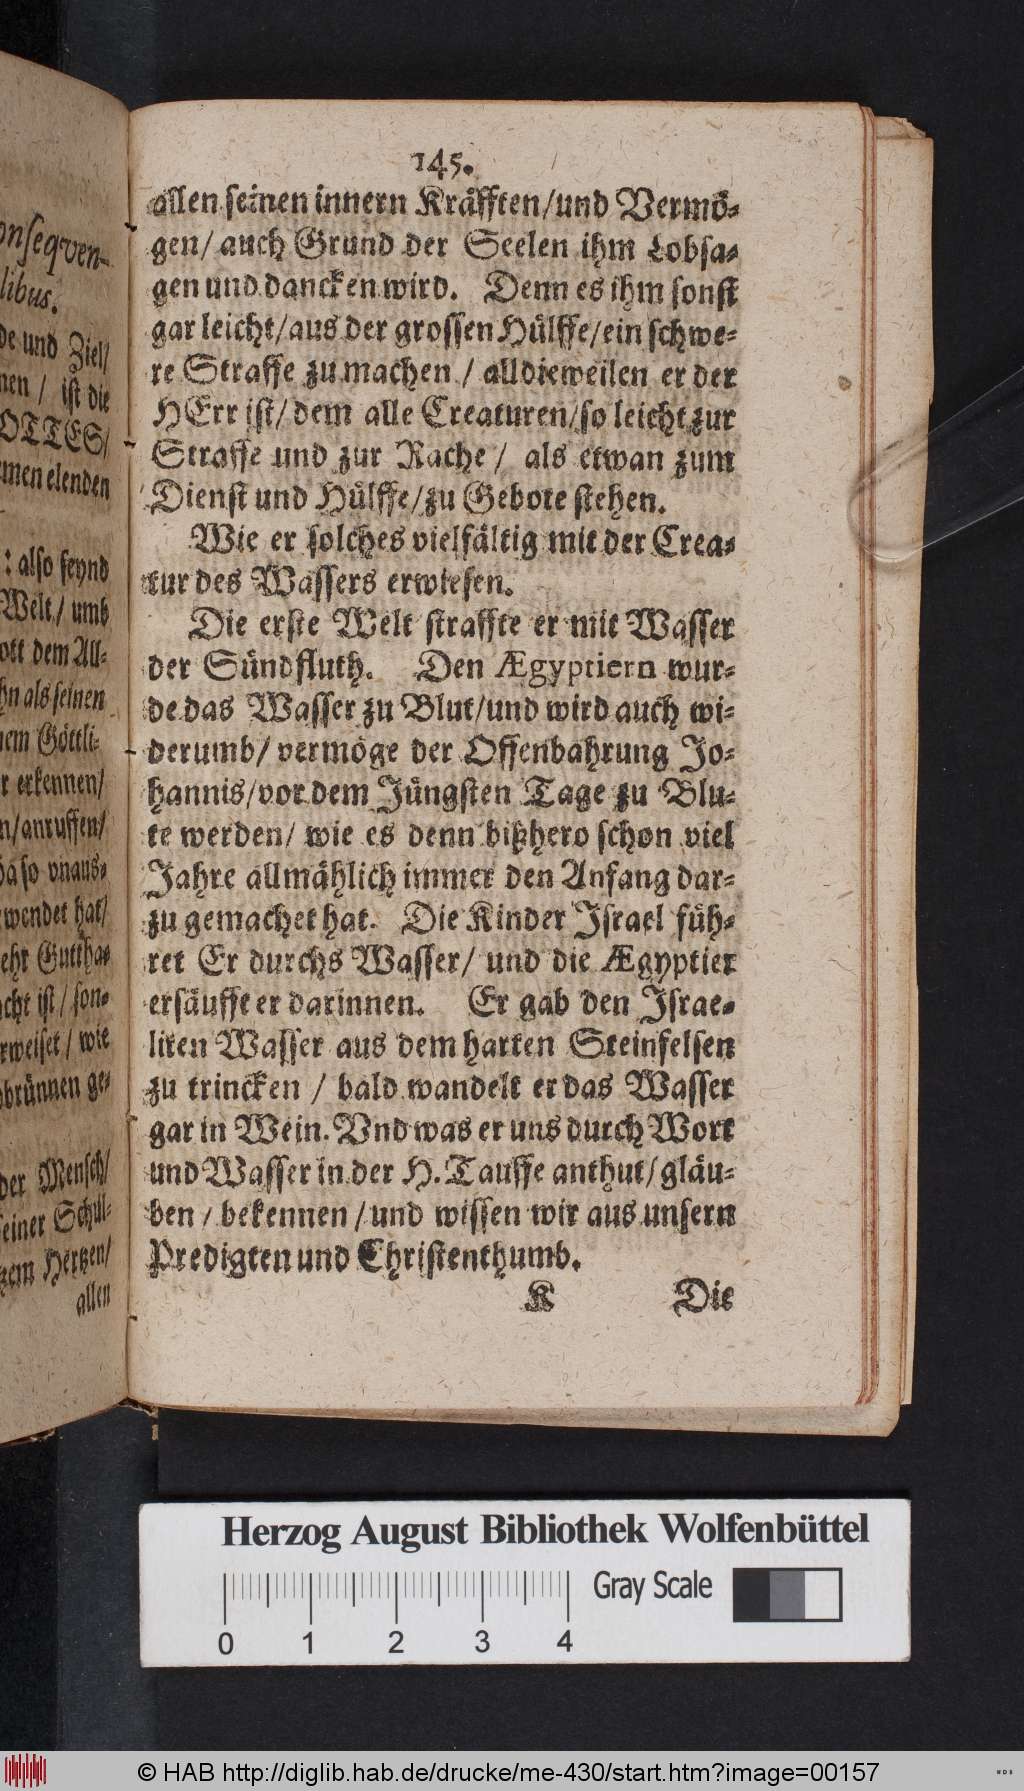 onseqven-
libus.
de und Ziel/
nen / ist die
OTTES/
men elenden
: also seynd
Welt / umb
ott dem All-
hn als seinen
nem Göttli-
r erkennen/
n/anruffen/
da so vnaus-
wendet hat/
ehr Guttha-
acht ist / son-
rweiset / wie
dbrünnen ge-
der Mensch/
seiner Schul-
tzem Hertzen/
allen
145.
allen seinen innern Kräfften/und Vermö-
gen/ auch Grund der Seelen ihm Lobsa-
gen und dancken wird. Denn es ihm sonst
gar leicht/aus der grossen Hülffe/ein schwe-
re Straffe zu machen / alldieweilen er der
HErr ist/ dem alle Creaturen/so leicht zur
Straffe und zur Rache / als etwan zum
Dienst und Hülffe/zu Gebote stehen.
Wie er solches vielfältig mit der Crea-
tur des Wassers erwiesen.
Die erste Welt straffte er mit Wasser
der Sündfluth. Den Ægyptiern wur-
de das Wasser zu Blut/und wird auch wi-
derumb/ vermöge der Offenbahrung Jo-
hannis/vor dem Jüngsten Tage zu Blu-
te werden/ wie es denn bißhero schon viel
Jahre allmählich immer den Anfang dar-
zu gemachet hat. Die Kinder Jsrael füh-
ret Er durchs Wasser/ und die Ægyptier
ersäufft er darinnen. Er gab den Jsrae-
liten Wasser aus dem harten Steinfelsen
zu trincken / bald wandelt er das Wasser
gar in Wein. Vnd was er uns durch Wort
und Wasser in der H. Tauffe anthut/gläu-
ben / bekennen / und wissen wir aus unsern
Predigten und Christenthumb.
K Die
Herzog August Bibliothek Wolfenbüttel
Gray Scale
0 1 2 3 4
© HAB http://diglib.hab.de/drucke/me-430/start.htm?image=00157